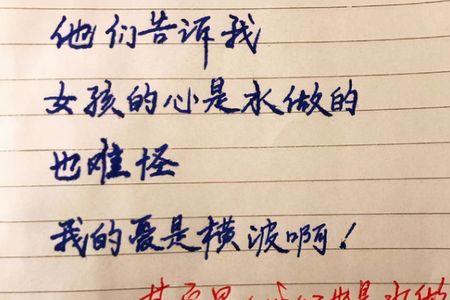 他们告诉我
女孩的心是水做的
也难怪
我的爱是横波啊!